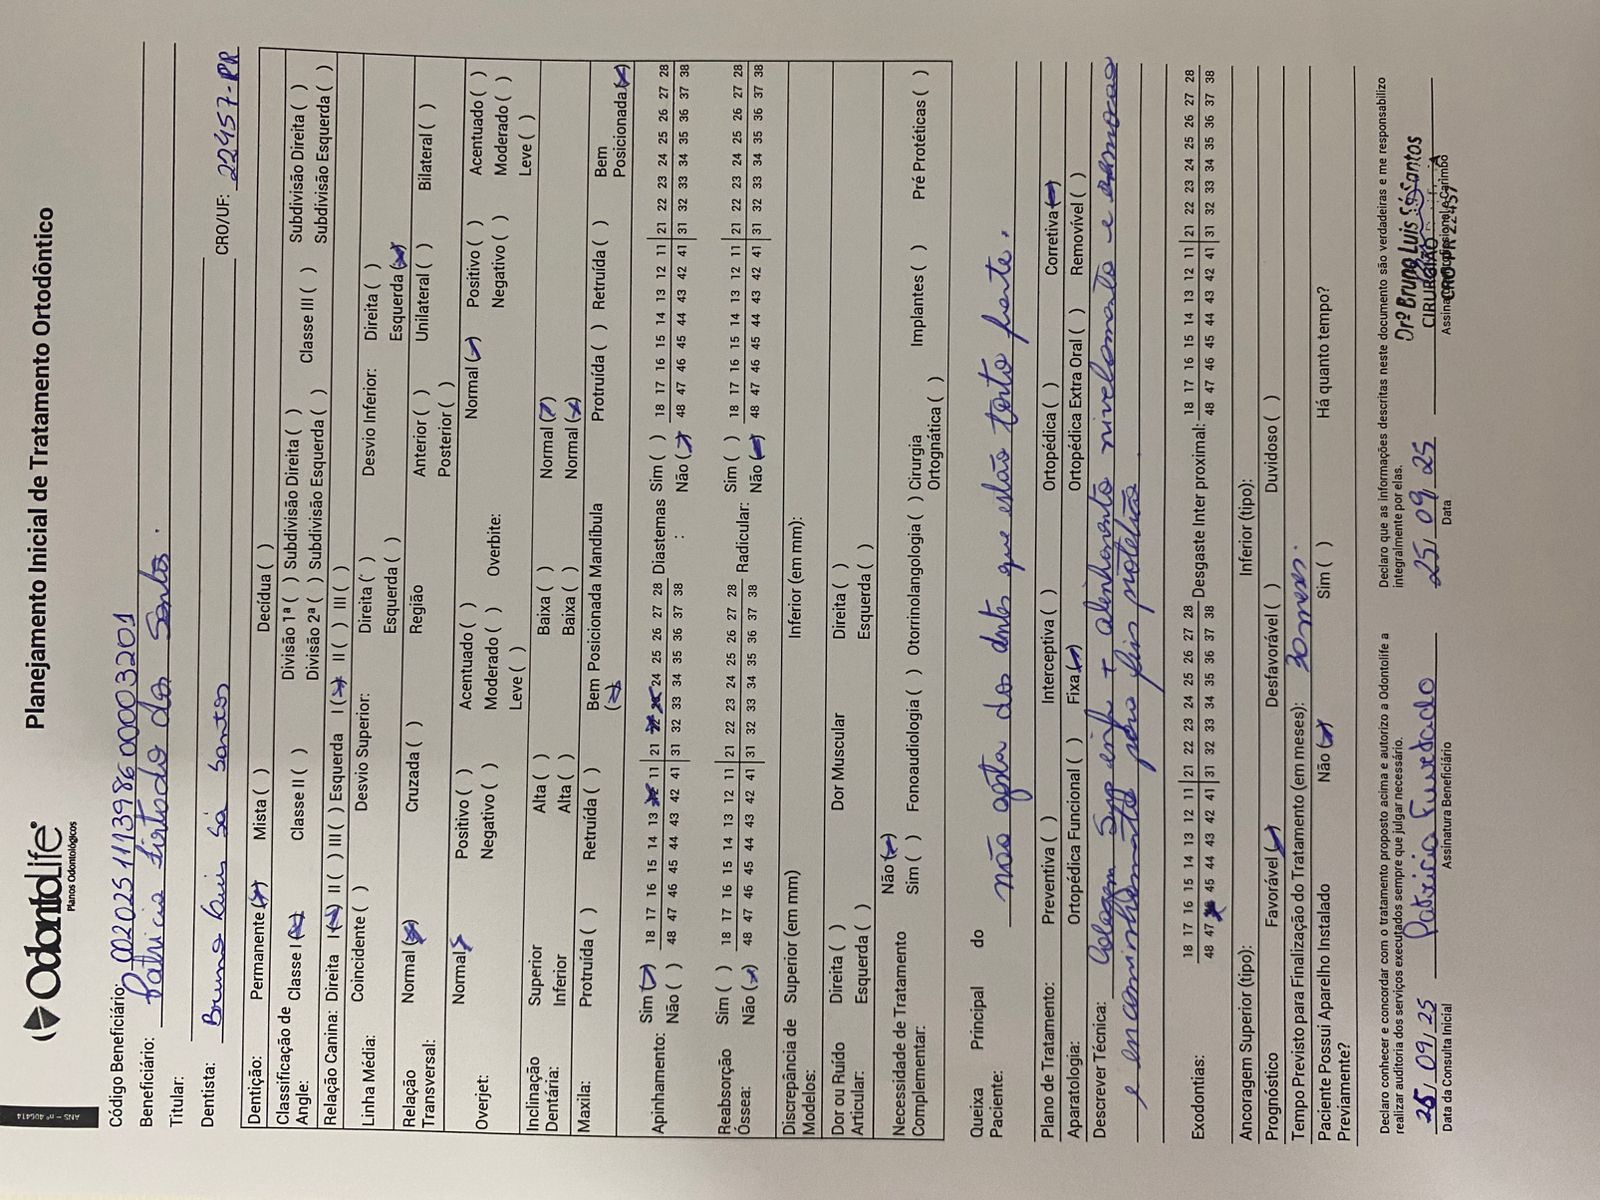 ANS – nº 406414
OdontoLife
Planos Odontológicos
Planejamento Inicial de Tratamento Ortodôntico
Código Beneficiário: 002025111398600003201
Beneficiário: Patricia Firtado dos Santos.
Titular:
Dentista: Bruno Luis Sá Santos CRO/UF: 22457-PR
Dentição: Permanente (x) Mista ( ) Decídua ( )
Classificação de Angle: Classe I (x) Classe II ( ) Divisão 1ª ( ) Subdivisão Direita ( ) Classe III ( ) Subdivisão Direita ( )
Divisão 2ª ( ) Subdivisão Esquerda ( ) Subdivisão Esquerda ( )
Relação Canina: Direita I (x) II ( ) III ( ) Esquerda I (x) II ( ) III ( )
Linha Média: Coincidente ( ) Desvio Superior: Direita ( ) Desvio Inferior: Direita ( )
Esquerda ( ) Esquerda (x)
Relação Transversal: Normal (x) Cruzada ( ) Região Anterior ( ) Unilateral ( ) Bilateral ( )
Posterior ( )
Overjet: Normal (x) Positivo ( ) Acentuado ( ) Overbite: Normal (x) Positivo ( ) Acentuado ( )
Negativo ( ) Moderado ( ) Negativo ( ) Moderado ( )
Leve ( ) Leve ( )
Inclinação Dentária: Superior Alta ( ) Baixa ( ) Normal (x)
Inferior Alta ( ) Baixa ( ) Normal (x)
Maxila: Protruída ( ) Retruída ( ) Bem Posicionada (x) Mandíbula Protruída ( ) Retruída ( ) Bem Posicionada (x)
Apinhamento: Sim (x) 18 17 16 15 14 13 12 11 | 21 22 23 24 25 26 27 28 Diastemas : Sim ( ) 18 17 16 15 14 13 12 11 | 21 22 23 24 25 26 27 28
Não ( ) 48 47 46 45 44 43 42 41 | 31 32 33 34 35 36 37 38 Não (x) 48 47 46 45 44 43 42 41 | 31 32 33 34 35 36 37 38
Reabsorção Óssea: Sim ( ) 18 17 16 15 14 13 12 11 | 21 22 23 24 25 26 27 28 Radicular: Sim ( ) 18 17 16 15 14 13 12 11 | 21 22 23 24 25 26 27 28
Não (x) 48 47 46 45 44 43 42 41 | 31 32 33 34 35 36 37 38 Não (x) 48 47 46 45 44 43 42 41 | 31 32 33 34 35 36 37 38
Discrepância de Modelos: Superior (em mm) Inferior (em mm):
Dor ou Ruído Articular: Direita ( ) Dor Muscular Direita ( )
Esquerda ( ) Esquerda ( )
Necessidade de Tratamento Complementar: Não (x)
Sim ( ) Fonoaudiologia ( ) Otorrinolangologia ( ) Cirurgia Ortognática ( ) Implantes ( ) Pré Protéticas ( )
Queixa Principal do Paciente: não gosta dos dentes que estão torto frente.
Plano de Tratamento: Preventiva ( ) Interceptiva ( ) Ortopédica ( ) Corretiva (x)
Aparatologia: Ortopédica Funcional ( ) Fixa (x) Ortopédica Extra Oral ( ) Removível ( )
Descrever Técnica: Colagem Sup e inf + alinhamento nivelamento e remoção
e encaminhamento para fins protético
Exodontias: 18 17 16 15 14 13 12 11 | 21 22 23 24 25 26 27 28 Desgaste Inter proximal: 18 17 16 15 14 13 12 11 | 21 22 23 24 25 26 27 28
48 47 46 45 44 43 42 41 | 31 32 33 34 35 36 37 38 48 47 46 45 44 43 42 41 | 31 32 33 34 35 36 37 38
Ancoragem Superior (tipo): Inferior (tipo):
Prognóstico Favorável (x) Desfavorável ( ) Duvidoso ( )
Tempo Previsto para Finalização do Tratamento (em meses): 30 meses.
Paciente Possui Aparelho Instalado Previamente? Não (x) Sim ( ) Há quanto tempo?
Declaro conhecer e concordar com o tratamento proposto acima e autorizo a Odontolife a
realizar auditoria dos serviços executados sempre que julgar necessário.
Declaro que as informações descritas neste documento são verdadeiras e me responsabilizo
integralmente por elas.
25/09/25 Patricia Furtado 25/09/25
Drº Bruno Luis Sá Santos
CIRURGIÃO
CRO PR 22457
Data da Consulta Inicial Assinatura Beneficiário Data Assinatura Profissional e Carimbo